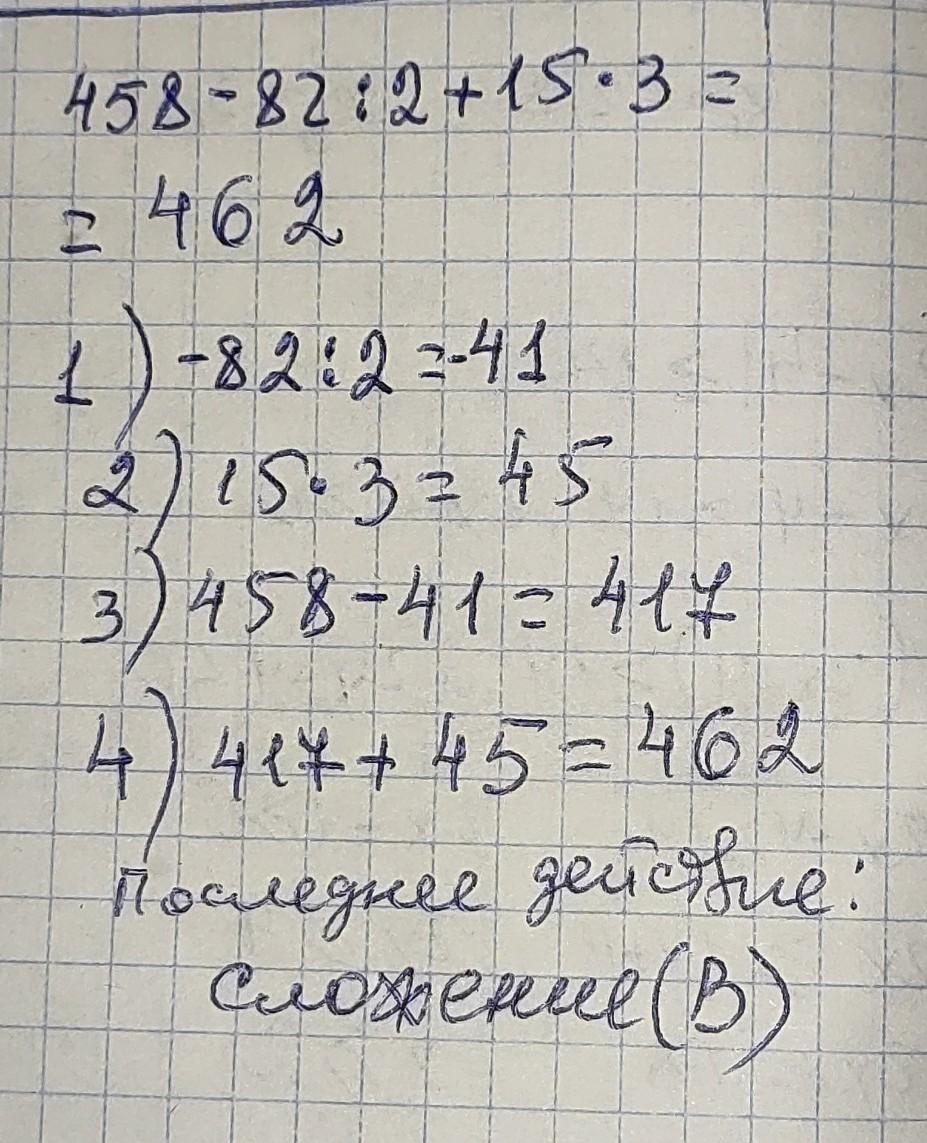 458-82:2+15·3=
=462
1) -82:2=-41
2) 15·3=45
3) 458-41=417
4) 417+45=462
Последнее действие:
сложение(В)